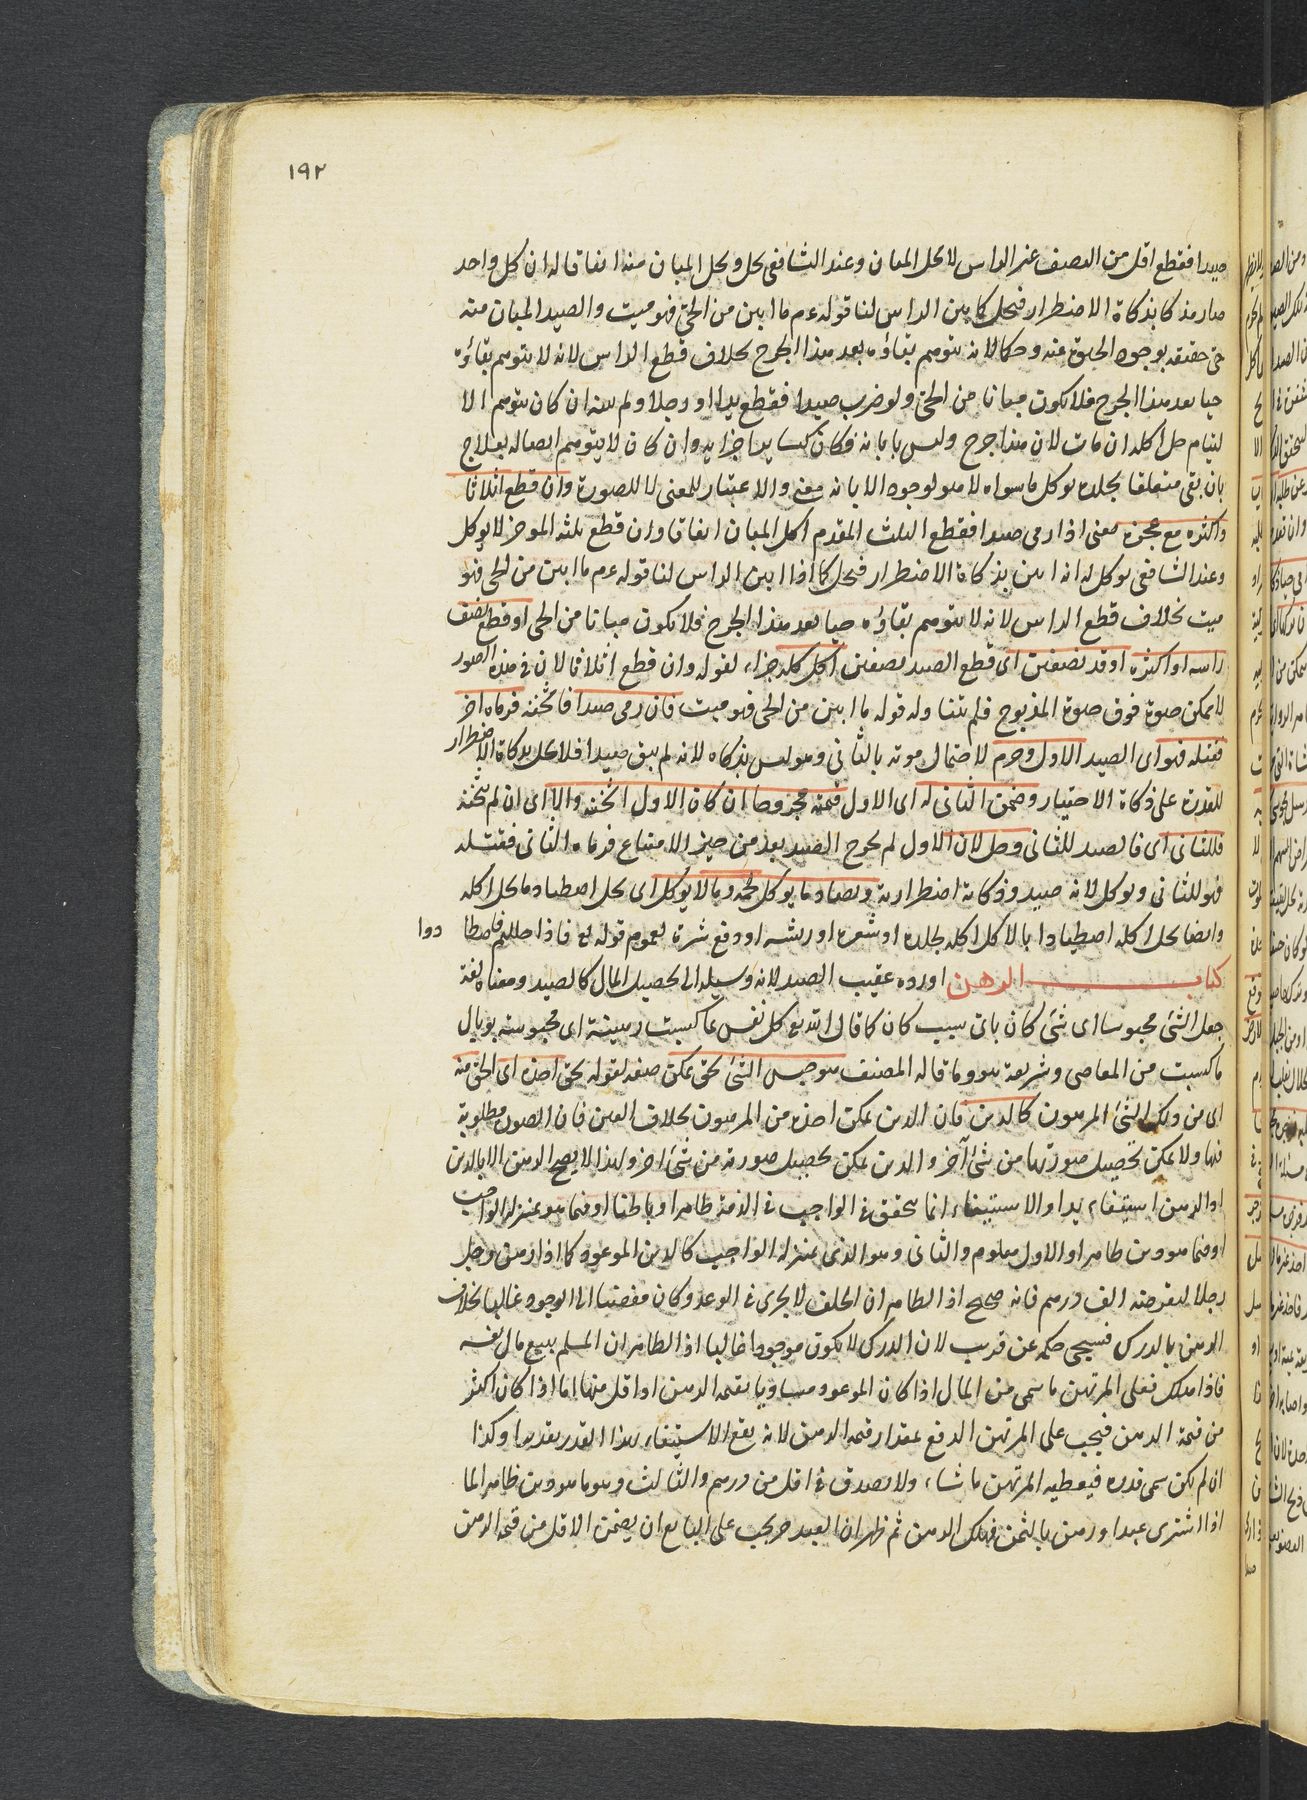 ١٩٢
صيدا فقطع اقل من النصف غير الراس لا يحل المبان وعند الشافعى يحل ويحل المبان منه ايضا قاله ان كل واحد
صار مذكا بذكاة الاضطرار فيحل كما بين الراس لنا قوله عم ما ابين من الحى فهو ميت والصيد المبان منه
حى حقيقة بوجود الحيوة فيه وحكما لانه يتوهم بقاؤه بعد هذا الجرح بخلاف قطع الراس لانه لا يتوهم بقاؤه
حيا بعد هذا الجرح فلا يكون مبانا من الحى ولو ضرب صيدا فقطع يدا او رجلا ولم يبنه ان كان يتوهم الا
لتيام حل اكله ان مات لان هذا جرح وليس بابانة فكان كساير اجزايه وان كان لا يتوهم اتصاله بعلاج
بان بقى متعلقا بجلده يوكل ما سواه لا هو لوجود الابانة معنى والاعتبار للمعنى لا للصورة وان قطع اثلاثا
واكثره مع عجزه يعنى اذا رمى صيدا فقطع الثلث المقدم اكل المبان اتفاقا وان قطع ثلثه الموخر لا يوكل
وعند الشافعى يوكل له انه ابين بذكاة الاضطرار فيحل كما اذا ابين الراس لنا قوله عم ما ابين من الحى فهو
ميت بخلاف قطع الراس لانه لا يتوهم بقاؤه حيا بعد هذا الجرح فلا يكون مبانا من الحى او قطع نصف
راسه او اكثره او قد نصفين اى قطع الصيد نصفين اكل كله جزاء لقوله وان قطع اثلاثا لان فى هذه الصور
لا يمكن حيوة فوق حيوة المذبوح فلم يتناوله قوله ما ابين من الحى فهو ميت فان رمى صيدا فاثخنه فرماه اخر
فقتله فهو اى الصيد الاول وحرم لاحتمال موته بالثانى وهو ليس بذكاه لانه لم يبق صيدا فلا يحل بذكاة الاضطرار
للقدرة على ذكاة الاختيار وضمن الثانى له اى الاول قيمته مجروحا ان كان الاول اثخنه والا اى ان لم يثخنه
فللثانى اى فالصيد للثانى وحل لان الاول لم يخرج الصيد بعد من حيز الامتناع فرماه الثانى فقتله
فهو للثانى ويوكل لانه صيد وذكاته اضطرارية ويصاد ما يوكل لحمه وما لا يوكل اى يحل اصطياد ما يحل اكله
وايضا يحل اكله اصطيادا بالا كل اكله لجلده او شعره او ريشه او دفع شره لعموم قوله تع فاذا حللتم فاصطا دوا
كتاب الرهن اورده عقيب الصيد لانه وسيلة الى تحصيل المال كالصيد ومعناه لغة
جعل الشئ محبوسا اى شئ كان باى سبب كان كما قال الله تع كل نفس بما كسبت رهينة اى محبوسة بوبال
ما كسبت من المعاصى وشريعة هو وما قاله المصنف هو حبس الشئ بحق يمكن صفة لقوله بحق اخذه اى الحق منه
اى من ذلك الشئ المرهون كالدين فان الدين يمكن اخذه من المرهون بخلاف العين فان الصورة مطلوبة
فيها ولا يمكن تحصيل صورتها من شئ آخر والدين يمكن تحصيل صورته من شئ اخر ولهذا لا يصح الرهن الا بالدين
او الرهن استيفاء يدا والاستيفاء انما يتحقق فى الواجب فى الذمة ظاهرا وباطنا او فيما هو بمنزلة الواجب
او فيما هو دين ظاهرا والاول معلوم والثانى وهو الذى بمنزلة الواجب كالدين الموعود كما اذا رهن رجل
رجلا ليقرضه الف درهم فانه صحيح اذ الظاهر ان الخلف لا يجرى فى الوعد وكان مفضيا الى الوجود غالبا بخلاف
الرهن بالدرك فسيجى حكمه عن قريب لان الدرك لا يكون موجودا غالبا اذ الظاهر ان المسلم يبيع مال نفسه
فاذا هلك فعلى المرتهن ما سمى من المال اذا كان الموعود مساويا بقيمة الرهن او اقل منها اما اذا كان اكثر
من قيمة الرهن فيجب على المرتهن الدفع بمقدار قيمة الرهن لانه يقع الاستيفاء بهذا القدر تقديرا وكذا
ان لم يكن سمى قدره فيعطيه المرتهن ما شاء ولا يصدق فى اقل من درهم والثالث وهو ما هو دين ظاهرا كما
اذا اشترى عبدا ورهن بالثمن فهلك الرهن ثم ظهر ان العبد حر يجب على البايع ان يضمن الاقل من قيمة الرهن